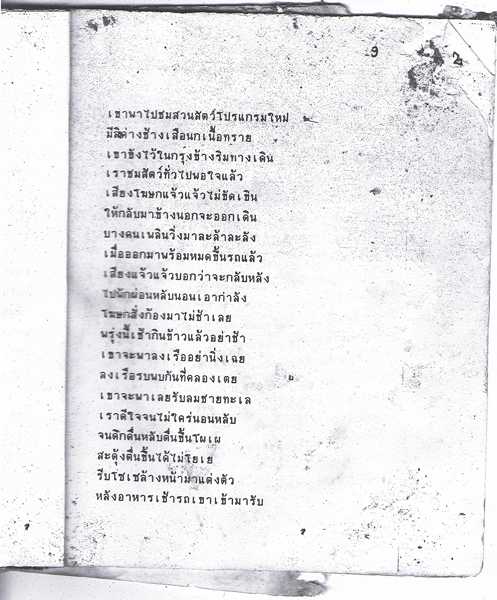 9 2
เขาพาไปชมสวนสัตว์โปรแกรมใหม่
มีลิค่างช้างเสือนกเนื้อทราย
เขาขังไว้ในกรุงข้างริมทางเดิน
เราชมสัตว์ทั่วไปพอใจแล้ว
เสียงโฆษกแจ้วแจ้วไม่ขัดเขิน
ให้กลับมาข้างนอกจะออกเดิน
บางคนเพลินวิ่งมาละล้าละลัง
เมื่อออกมาพร้อมหมดขึ้นรถแล้ว
เสียงแจ้วแจ้วบอกว่าจะกลับหลัง
ไปพักผ่อนหลับนอนเอากำลัง
โฆษกสั่งก้องมาไม่ช้าเลย
พรุ่งนี้เช้ากินข้าวแล้วอย่าช้า
เขาจะพาลงเรืออย่านิ่งเฉย
ลงเรือรบพบกันที่คลองเตย
เขาจะพาเลยรับลมชายทะเล
เราดีใจจนไม่ใคร่นอนหลับ
จนดึกตื่นหลับตื่นขึ้นโผเผ
สะดุ้งตื่นขึ้นได้ไม่โยเย
รีบโซเซล้างหน้ามาแต่งตัว
หลังอาหารเช้ารถเขาเข้ามารับ